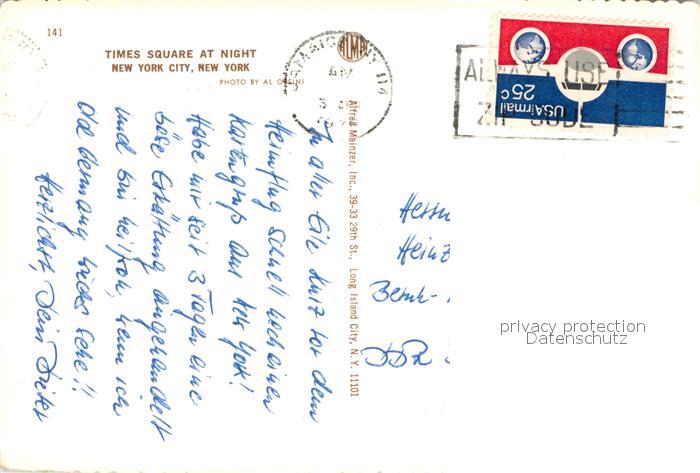 141
TIMES SQUARE AT NIGHT
NEW YORK CITY, NEW YORK
PHOTO BY AL
ALMA
N.Y. 114
AM
ALWAYS USE
ZIP CODE
USAirmail
25c
Alfred Mainzer, Inc., 39-33 29th St., Long Island City, N. Y. 11101
In aller Eile kurz vor dem
Heimflug schnell noch einen
Kartengruß aus New York!
Habe mir seit 3 Tagen eine
böse Erkältung angehandelt
und bin heilfroh, wenn ich
old Germany wieder sehe!!
Herzlichst, Dein Dieter
Herrn
Heinz
DDR
privacy protection
Datenschutz